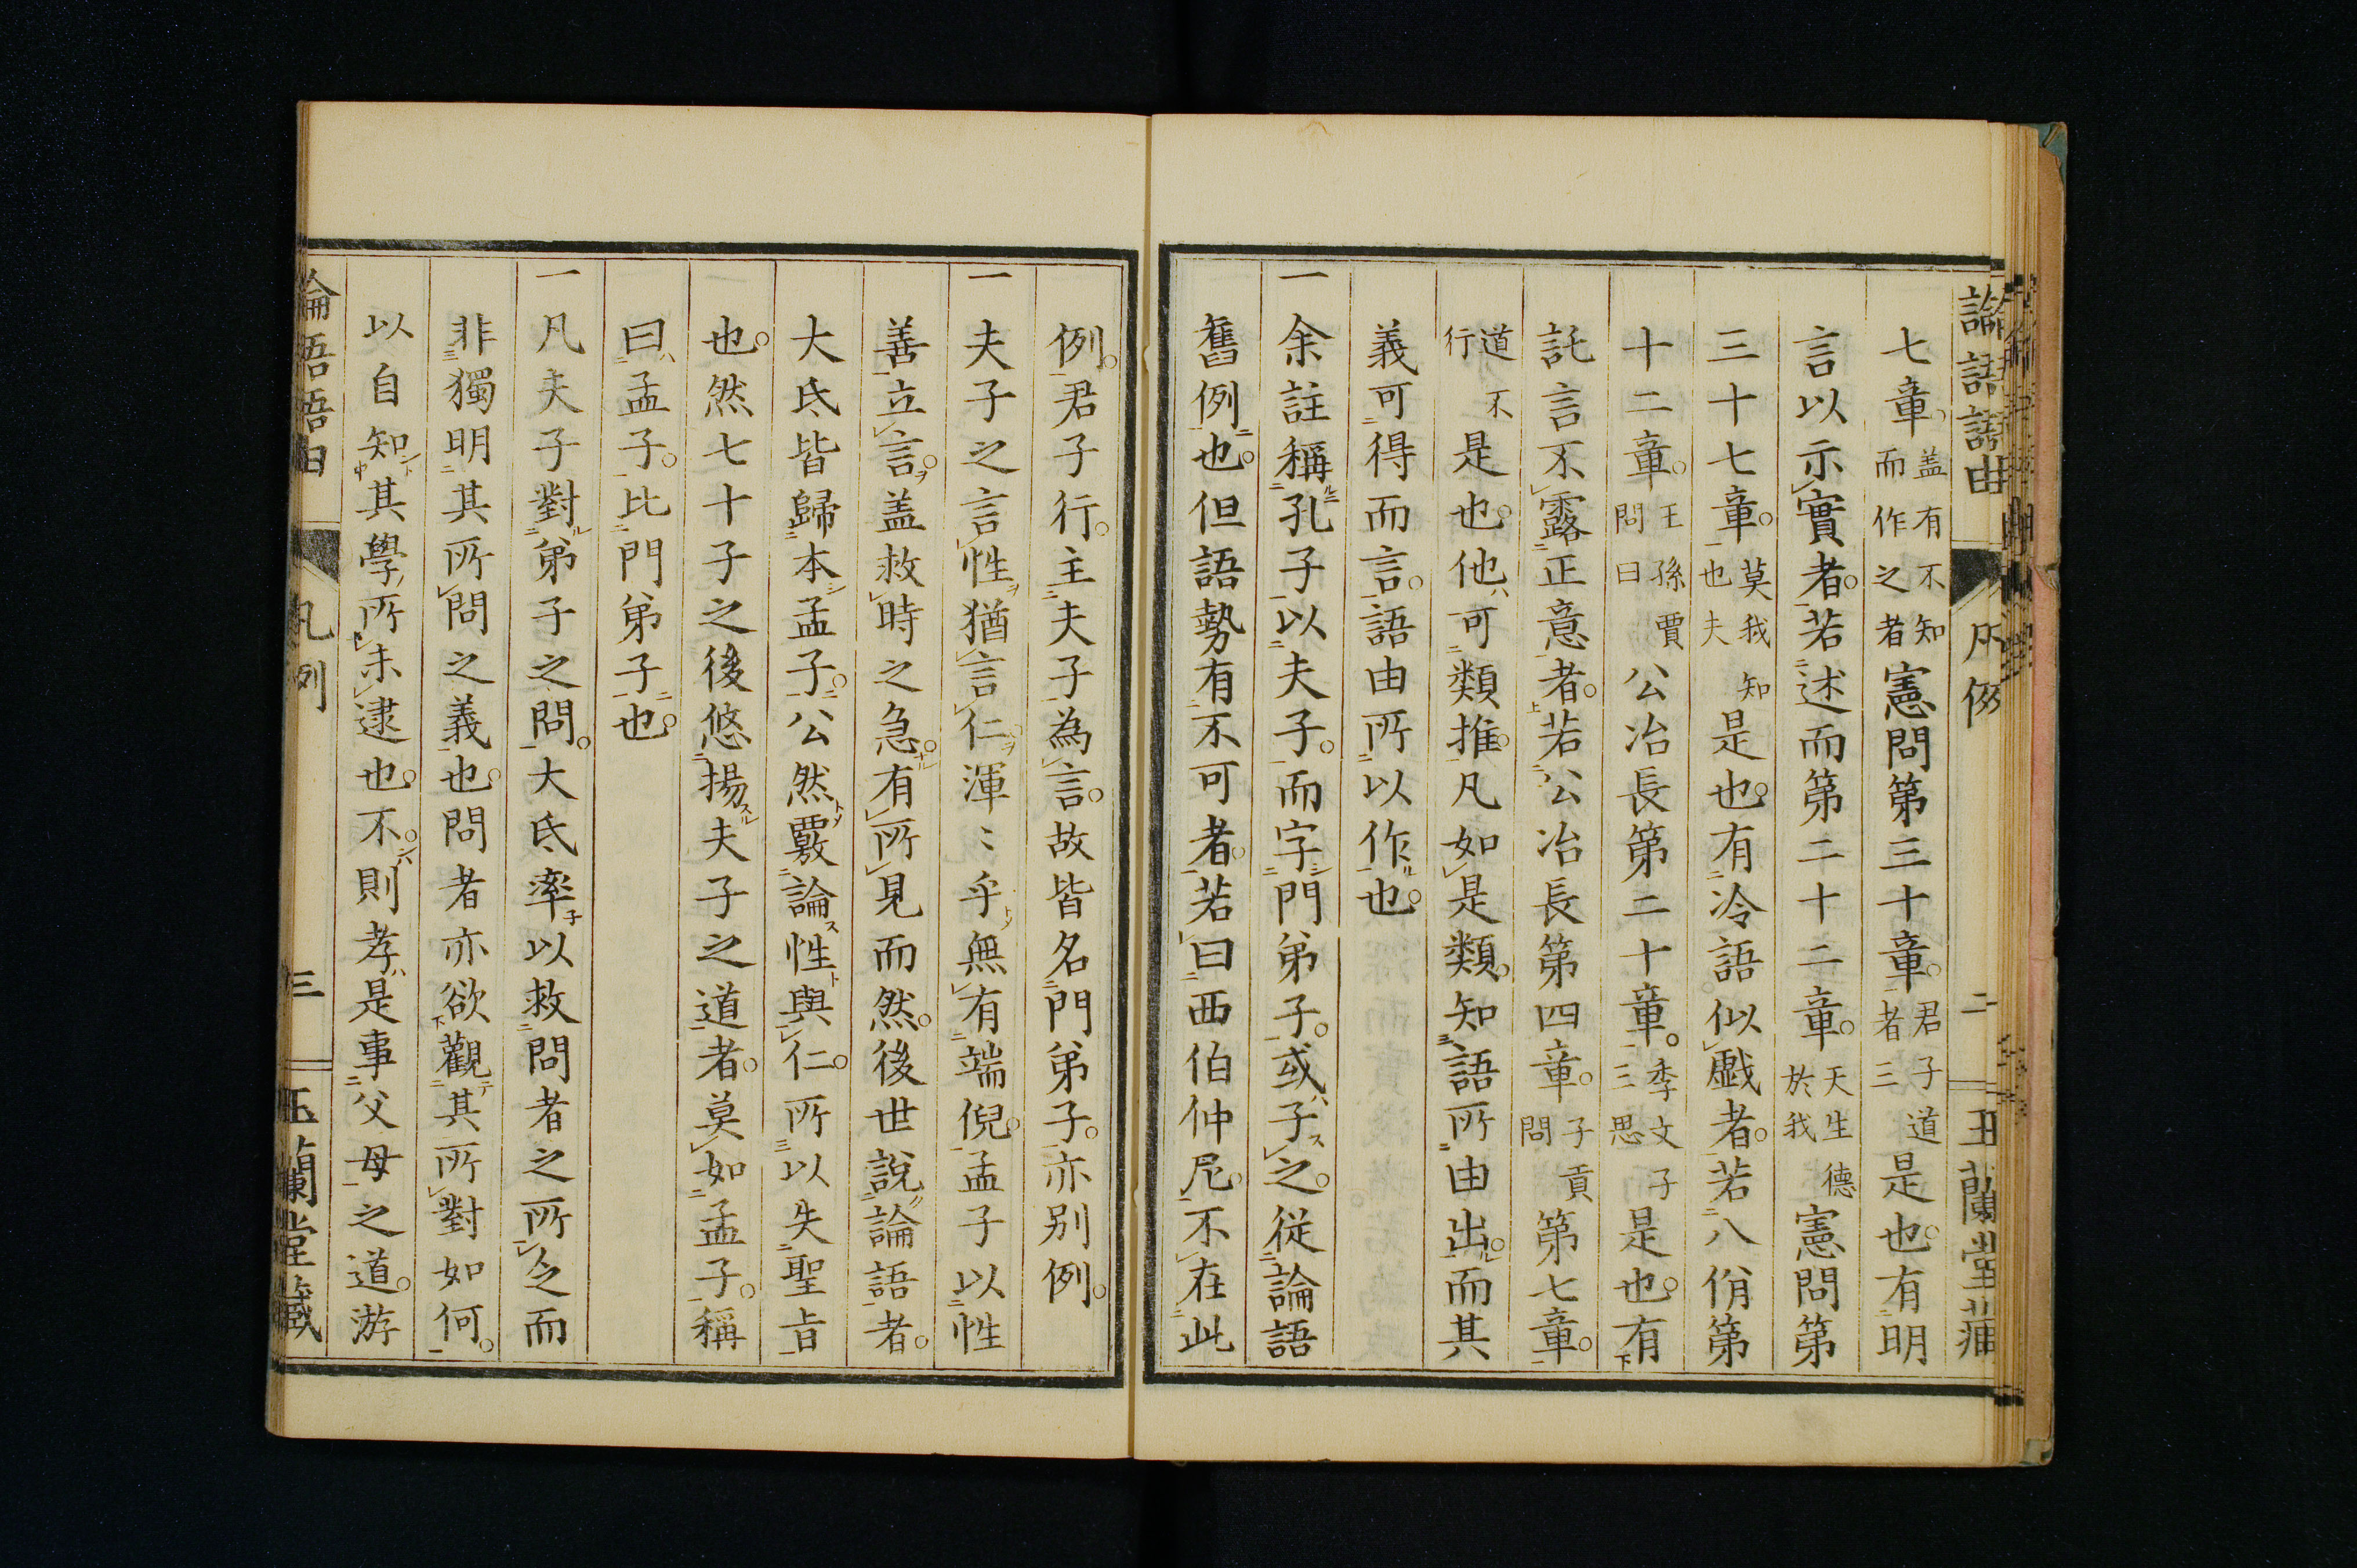 論語語由 凡例 二 玉蘭堂藏
七章蓋有不知而作之者憲問第三十章君子道者三是也有明
言以示實者若述而第二十二章天生德於我憲問第
三十七章莫我知也夫是也有冷語似戲者若八佾第
十二章王孫賈問曰公冶長第二十章季文子三思是也有
託言不露正意者若公冶長第四章子貢問第七章
道不行是也他可類推凡如是類知語所由出而其
義可得而言語由所以作也
一余註稱孔子以夫子而字門弟子或子之從論語
舊例也但語勢有不可者若曰西伯仲尼不在此
例君子行主夫子為言故皆名門弟子亦別例
一夫子之言性猶言仁渾〻乎無有端倪孟子以性
善立言蓋救時之急有所見而然後世說論語者
大氐皆歸本孟子公然覈論性與仁所以失聖旨
也然七十子之後悠揚夫子之道者莫如孟子稱
曰孟子比門弟子也
一凡夫子對弟子之問大氐率以救問者之所之而
非獨明其所問之義也問者亦欲觀其所對如何
以自知其學所未逮也不則孝是事父母之道游
論語語由 凡例 三 玉蘭堂藏